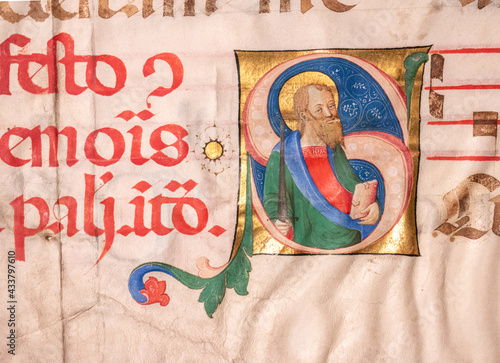 festo ꝯ
emoīs
palj.itō.
S
Adobe Stock | #433797610